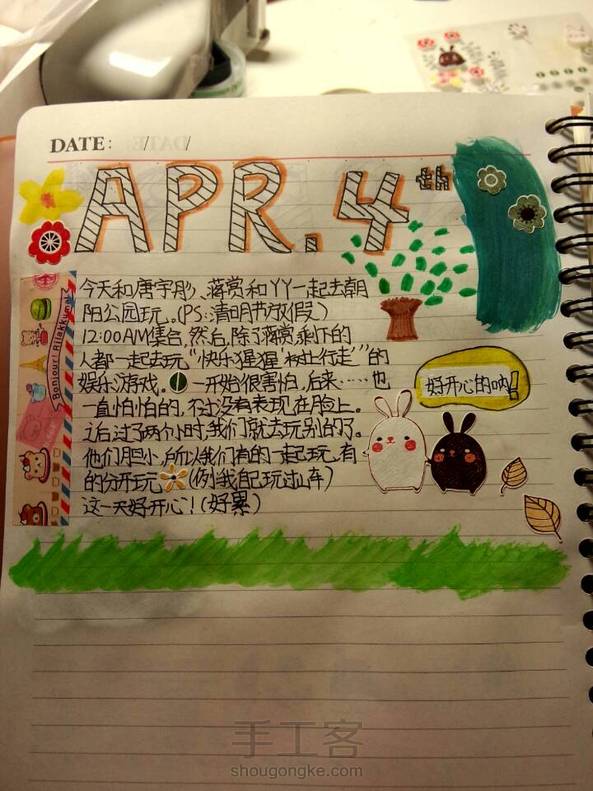 DATE:
APR. 4th
Bonjour! Rilakkuma
今天和唐宇彤、蒋赏和YY一起去朝
阳公园玩..(PS:清明节放假)
12:00AM集合,然后,除了蒋赏,剩下的
人都一起去玩“快乐猩猩树上行走”的
娱乐游戏。一开始很害怕,后来……也
一直怕怕的,不过没有表现在脸上。
之后过了两个小时,我们就去玩别的了。
他们胆小,所以我们有的一起玩,有
的分开玩(例:我自己玩过山车)
这一天好开心!(好累)
好开心的呐!
手工客
shougongke.com